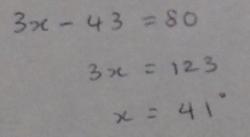 3x - 43 = 80
3x = 123
x = 41°